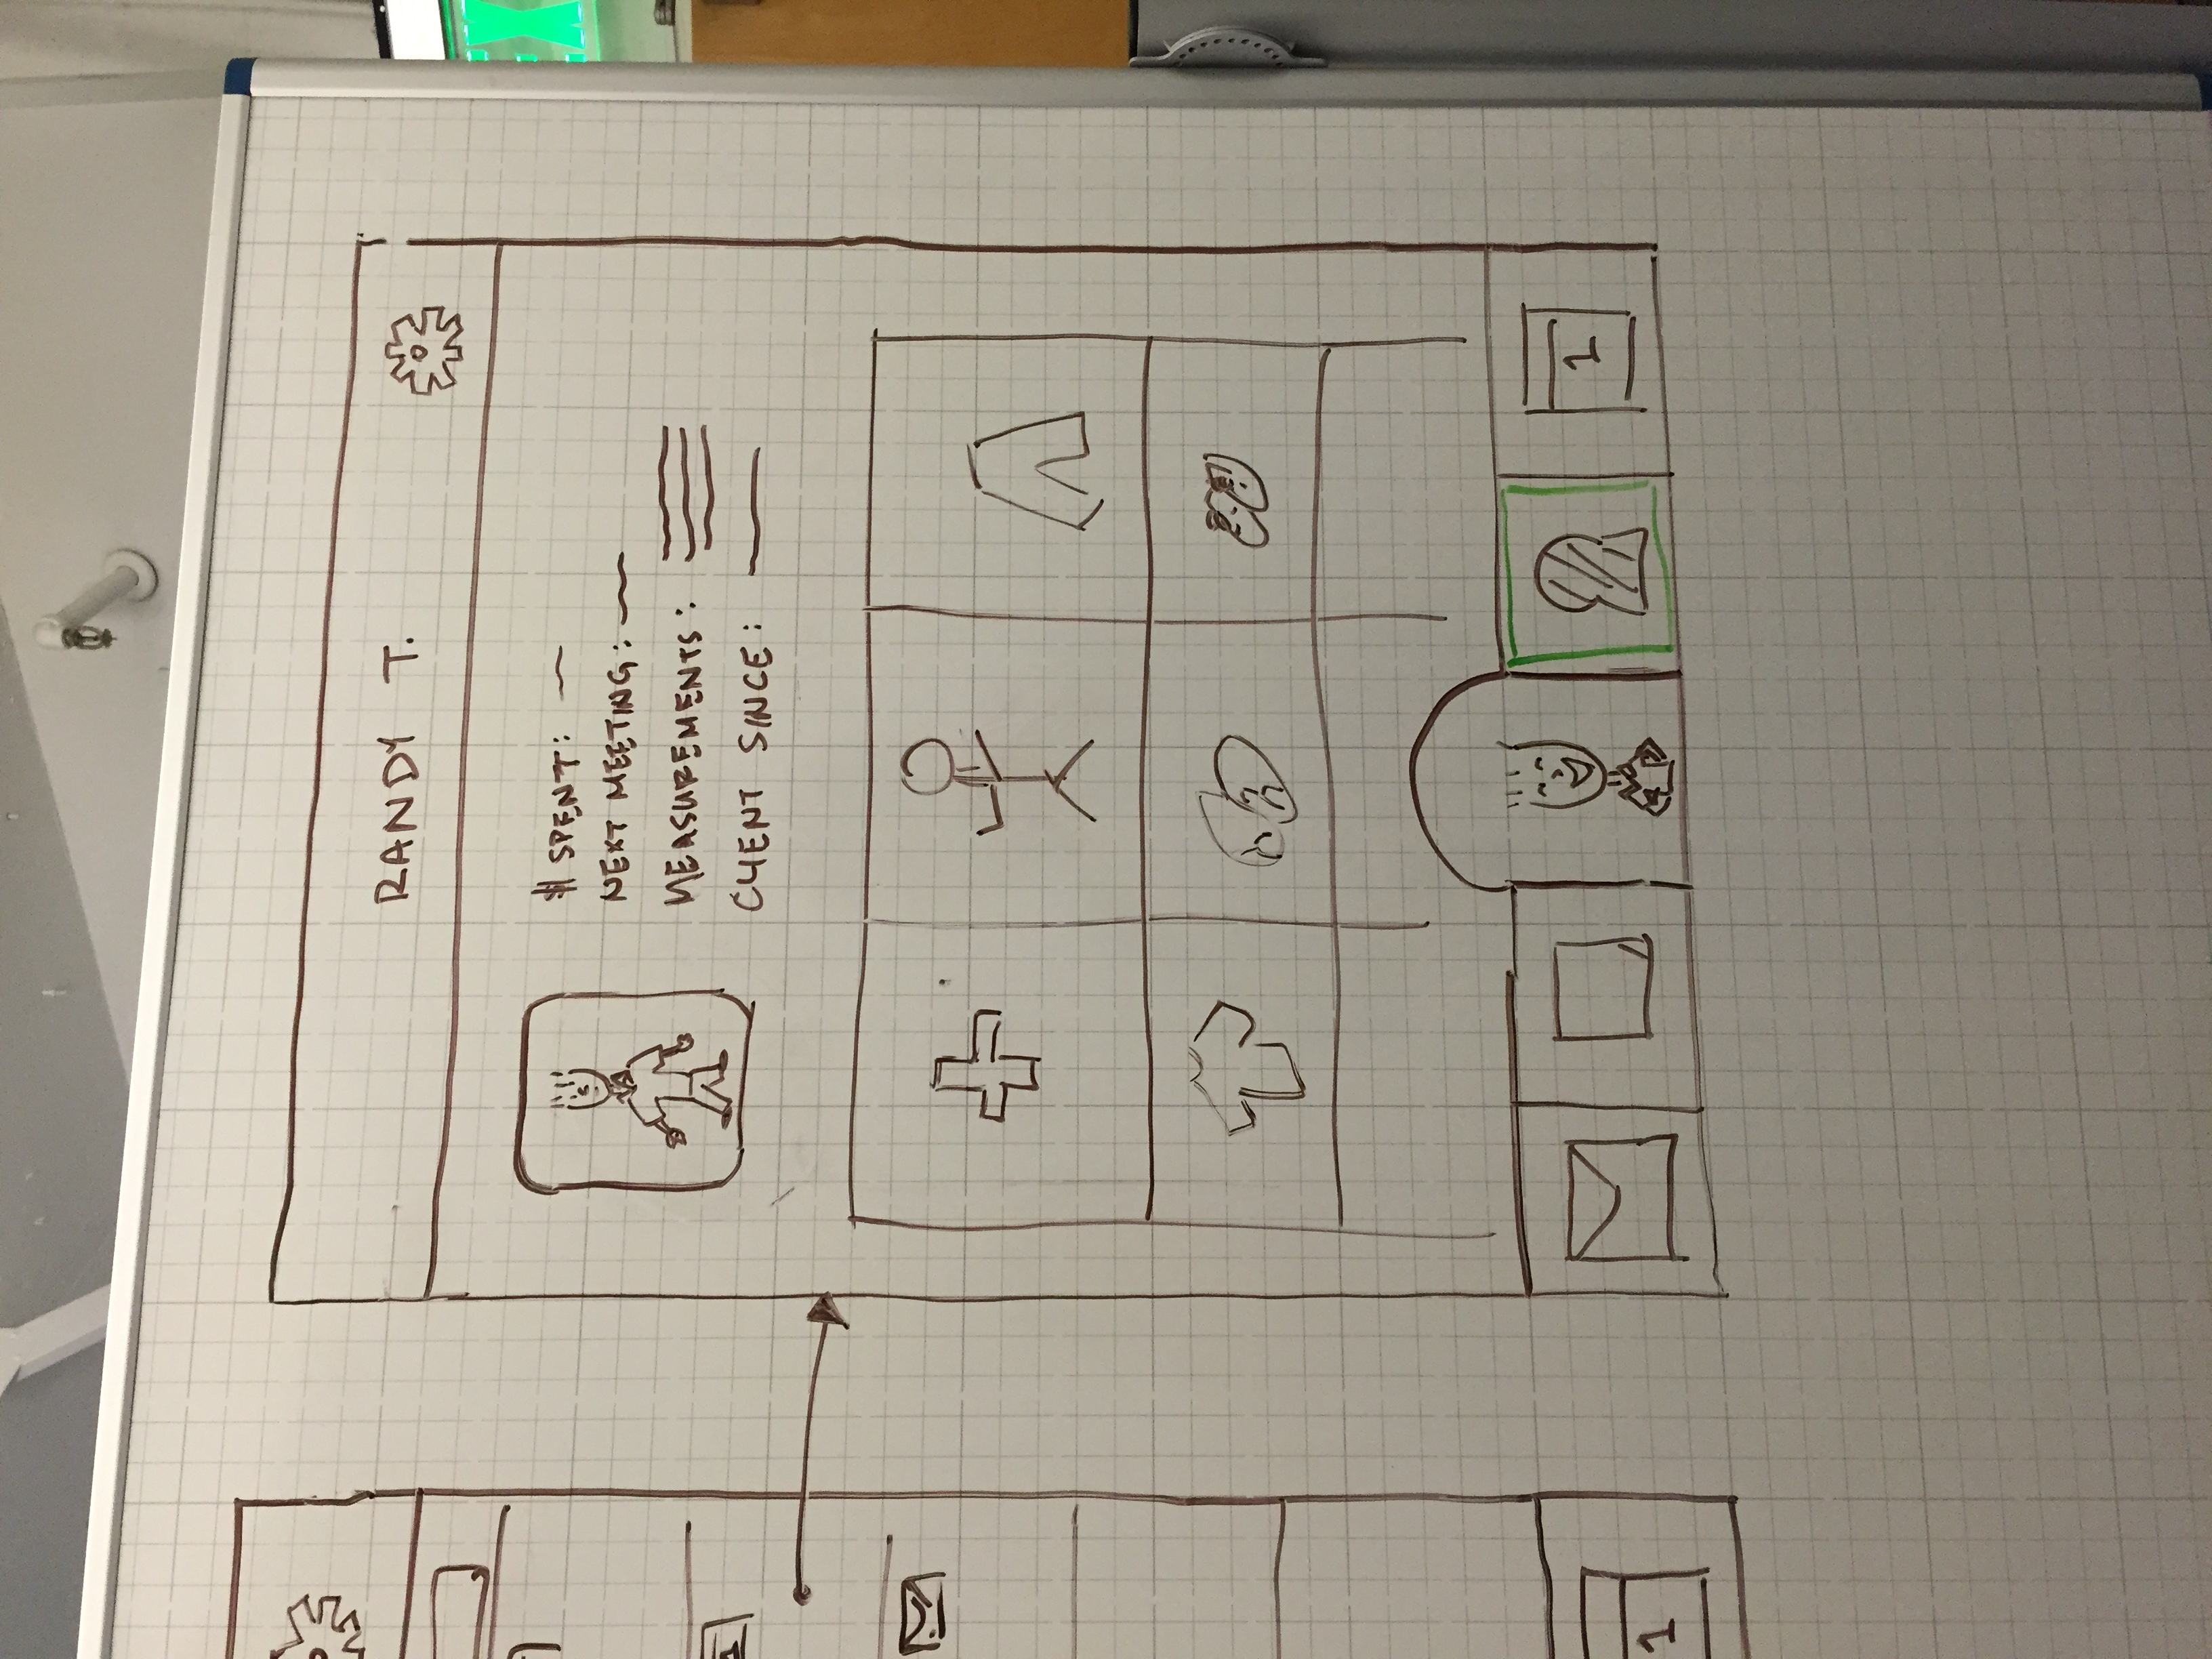 RANDY T.
$ SPENT:
NEXT MEETING:
MEASUREMENTS:
CLIENT SINCE:
1
1
EX